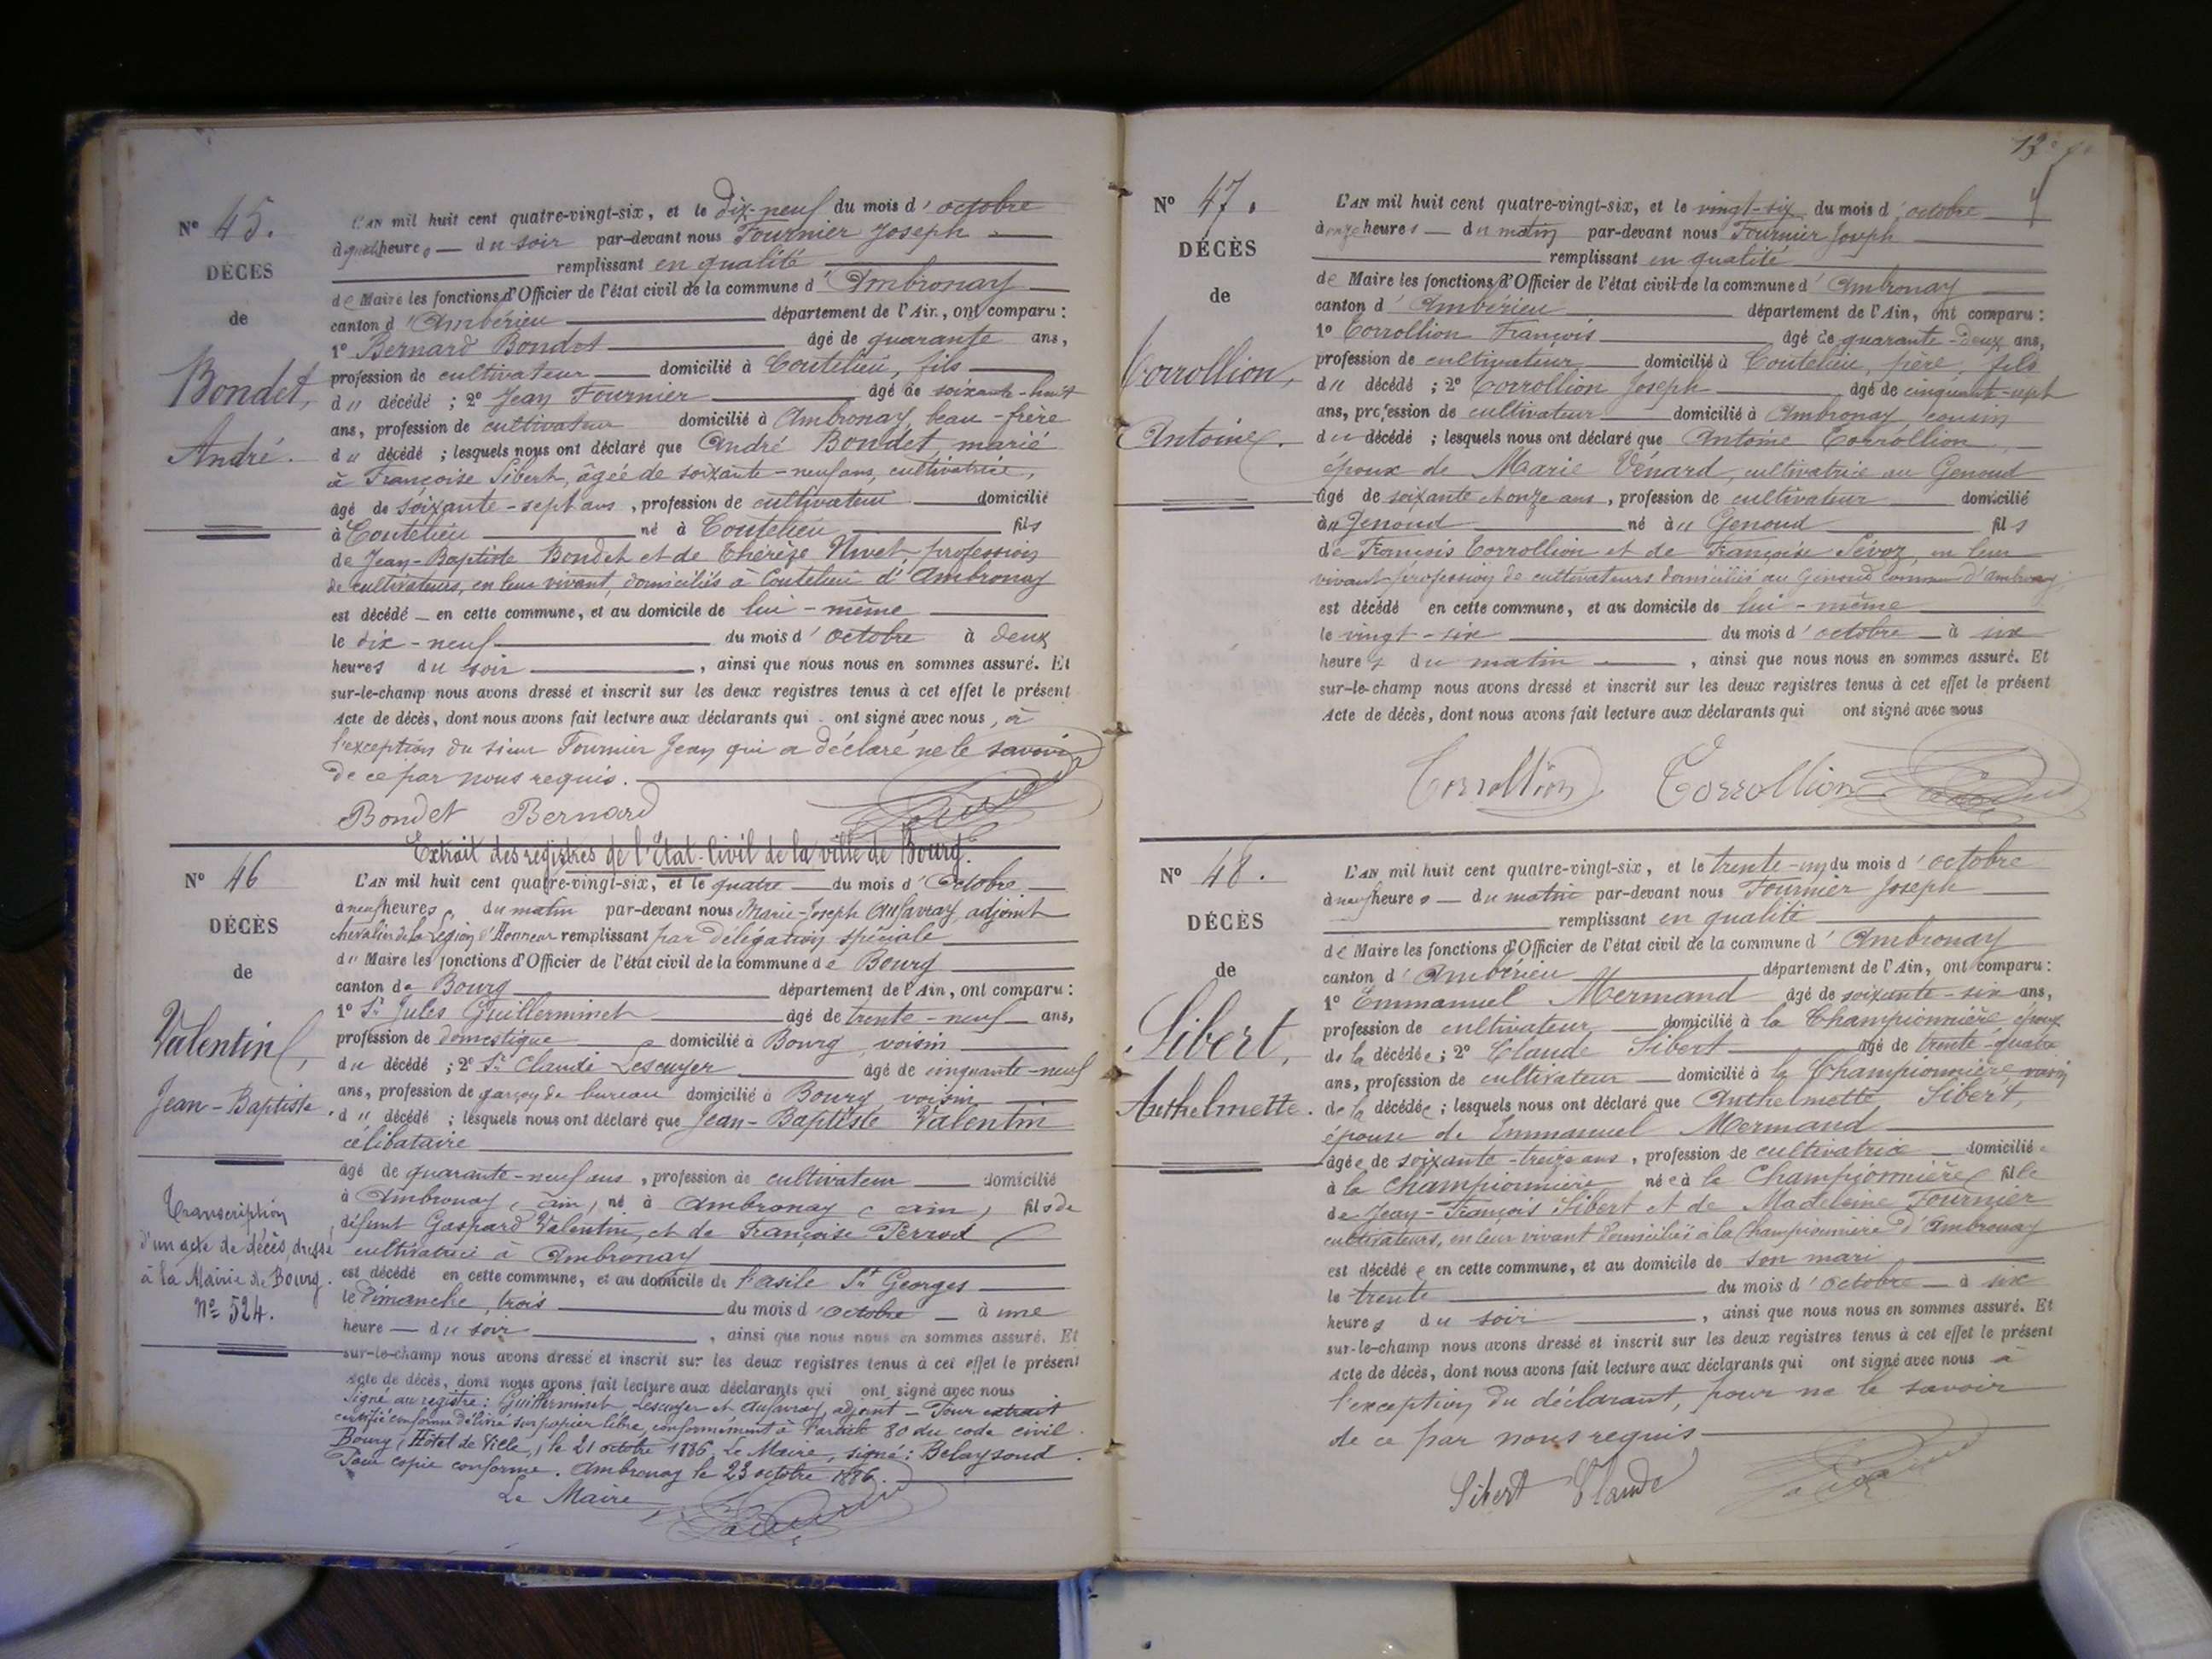 N° 45.
DÉCÈS
de
Bondet,
André.
L'AN mil huit cent quatre-vingt-six, et le dix-neuf du mois d'octobre
à quatre heures du soir par-devant nous Fournier Joseph
remplissant en qualité
de Maire les fonctions d'Officier de l'état civil de la commune d'Ambronay
canton d'Ambérieu département de l'Ain, ont comparu :
1° Bernard Bondet âgé de quarante ans,
profession de cultivateur domicilié à Coutelieu, fils
du décédé ; 2° Jean Fournier âgé de soixante-huit
ans, profession de cultivateur domicilié à Ambronay, beau-frère
du décédé ; lesquels nous ont déclaré que André Bondet, marié
à Françoise Sibert, âgée de soixante-neuf ans, cultivatrice,
âgé de soixante-sept ans, profession de cultivateur domicilié
à Coutelieu né à Coutelieu fils
de Jean-Baptiste Bondet et de Thérèze Nivet profession
de cultivateurs, en leur vivant, domiciliés à Coutelieu d'Ambronay
est décédé en cette commune, et au domicile de lui-même
le dix-neuf du mois d'octobre à deux
heures du soir, ainsi que nous nous en sommes assuré. Et
sur-le-champ nous avons dressé et inscrit sur les deux registres tenus à cet effet le présent
Acte de décès, dont nous avons fait lecture aux déclarants qui ont signé avec nous, à
l'exception du sieur Fournier Jean qui a déclaré ne le savoir
de ce par nous requis.
Bondet Bernard
Extrait des registres de l'Etat-Civil de la ville de Bourg.
N° 46
DÉCÈS
de
Valentin,
Jean-Baptiste.
Transcription
d'un acte de décès, dressé
à la Mairie de Bourg.
N° 524.
L'AN mil huit cent quatre-vingt-six, et le quatre du mois d'Octobre
à neuf heures du matin par-devant nous Marie-Joseph Aufavray, adjoint
chevalier de la Légion d'Honneur remplissant par délégation spéciale
du Maire les fonctions d'Officier de l'état civil de la commune de Bourg
canton de Bourg département de l'Ain, ont comparu :
1° Sr Jules Guillerminet âgé de trente-neuf ans,
profession de domestique domicilié à Bourg, voisin
du décédé ; 2° Sr Claude Lescuyer âgé de cinquante-neuf
ans, profession de garçon de bureau domicilié à Bourg, voisin
du décédé ; lesquels nous ont déclaré que Jean-Baptiste Valentin
célibataire
âgé de quarante-neuf ans, profession de cultivateur domicilié
à Ambronay (ain) né à Ambronay (ain) fils de
défunt Gaspard Valentin, et de Françoise Perrod
cultivatrice à Ambronay
est décédé en cette commune, et au domicile de l'asile St Georges
le Dimanche, trois du mois d'octobre à une
heure du soir, ainsi que nous nous en sommes assuré. Et
sur-le-champ nous avons dressé et inscrit sur les deux registres tenus à cet effet le présent
Acte de décès, dont nous avons fait lecture aux déclarants qui ont signé avec nous
Signé au registre : Guillerminet, Lescuyer et Aufavray, adjoint - Pour extrait
certifié conforme délivré sur papier libre, conformément à l'article 80 du code civil.
Bourg, (Hôtel de Ville,) le 21 octobre 1886, Le Maire, signé : Belaysoud.
Pour copie conforme. Ambronay le 23 octobre 1886.
Le Maire
13
N° 47.
DÉCÈS
de
Corrollion,
Antoine.
L'AN mil huit cent quatre-vingt-six, et le vingt-six du mois d'octobre
à onze heures du matin par-devant nous Fournier Joseph
remplissant en qualité
de Maire les fonctions d'Officier de l'état civil de la commune d'Ambronay
canton d'Ambérieu département de l'Ain, ont comparu :
1° Corrollion François âgé de quarante-deux ans,
profession de cultivateur domicilié à Coutelieu, fils
du décédé ; 2° Corrollion Joseph âgé de cinquante-sept
ans, profession de cultivateur domicilié à Ambronay, cousin
du décédé ; lesquels nous ont déclaré que Antoine Corrollion,
époux de Marie Vénard, cultivatrice au Genoud
âgé de soixante et onze ans, profession de cultivateur domicilié
au Genoud né au Genoud fils
de François Corrollion et de Françoise Sévoz, en leur
vivant profession de cultivateurs domiciliés au Genoud commune d'Ambronay,
est décédé en cette commune, et au domicile de lui-même
le vingt-six du mois d'octobre à six
heures du matin, ainsi que nous nous en sommes assuré. Et
sur-le-champ nous avons dressé et inscrit sur les deux registres tenus à cet effet le présent
Acte de décès, dont nous avons fait lecture aux déclarants qui ont signé avec nous
Corrollion Corrollion
N° 48.
DÉCÈS
de
Sibert,
Anthelmette.
L'AN mil huit cent quatre-vingt-six, et le trente-un du mois d'octobre
à neuf heures du matin par-devant nous Fournier Joseph
remplissant en qualité
de Maire les fonctions d'Officier de l'état civil de la commune d'Ambronay
canton d'Ambérieu département de l'Ain, ont comparu :
1° Emmanuel Mermand âgé de soixante-six ans,
profession de cultivateur domicilié à la Championnière époux
de la décédée ; 2° Claude Sibert âgé de trente-quatre
ans, profession de cultivateur domicilié à la Championnière voisin
de la décédée ; lesquels nous ont déclaré que Anthelmette Sibert,
épouse de Emmanuel Mermand
âgée de soixante-treize ans, profession de cultivatrice domiciliée
à la Championnière née à la Championnière fille
de Jean-François Sibert et de Madeleine Fournier
cultivateurs, en leur vivant domiciliés à la Championnière d'Ambronay
est décédée en cette commune, et au domicile de son mari
le trente du mois d'octobre à six
heures du soir, ainsi que nous nous en sommes assuré. Et
sur-le-champ nous avons dressé et inscrit sur les deux registres tenus à cet effet le présent
Acte de décès, dont nous avons fait lecture aux déclarants qui ont signé avec nous à
l'exception du déclarant, pour ne le savoir
de ce par nous requis
Sibert Claude